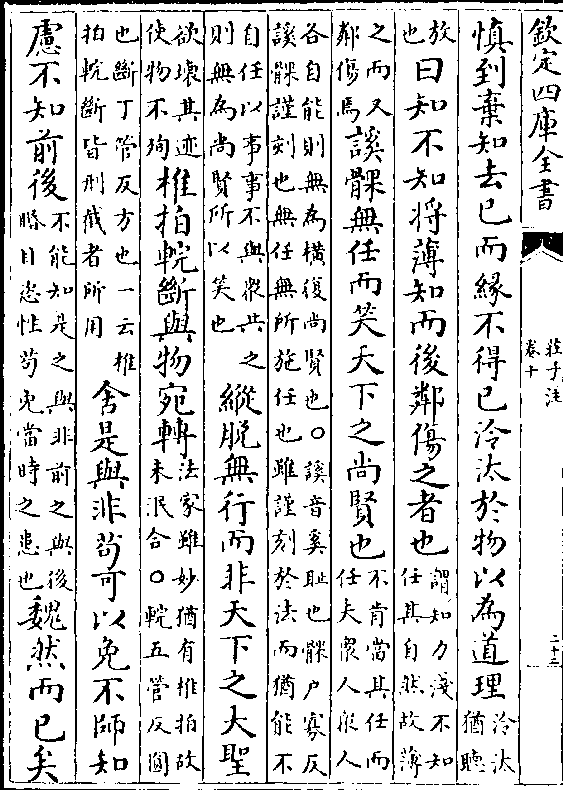 欽定四庫全書
莊子注
卷十
二十三
慎到棄知去已而緣不得已泠汰於物以為道理泠汰猶聽
放也曰知不知将薄知而後鄰傷之者也謂知力淺不知任其自然故薄
之而又鄰傷焉謑髁無任而笑天下之尚賢也不肯當其任而任夫衆人衆人
各自能則無為横復尚賢也○謑音奚耻也髁户寡反謑髁謹刻也無任無所施任也雖謹刻於法而猶能不
自任以事事不與衆共之則無為尚賢所以笑也縱脱無行而非天下之大聖
欲壊其迹使物不殉椎拍輐斷與物宛轉法家雖妙猶有椎拍故未泯合○輐五管反圓
也斷丁管反方也一云椎拍輐斷皆刑截者所用舍是與非苟可以免不師知
慮不知前後不能知是之與非前之與後睧目恣性苟免當時之患也魏然而已矣